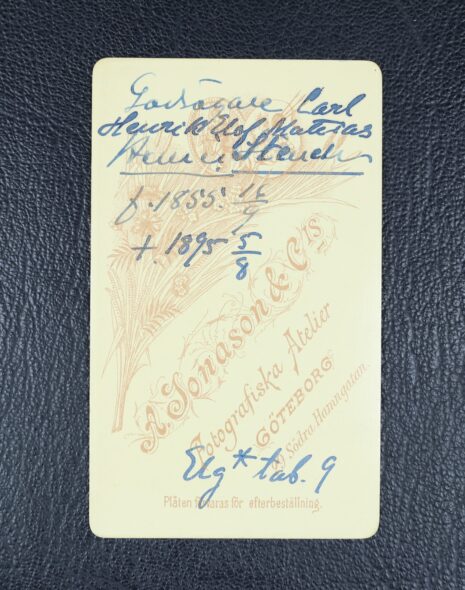 Godsägare Carl
Henrik Elof Mattias
f. 1855. 16/9
†. 1895 5/8
A. Jonason & C:is
Fotografiska Atelier
GÖTEBORG
Södra Hamngatan.
Elg* tab. 9
Plåten förvaras för efterbeställning.